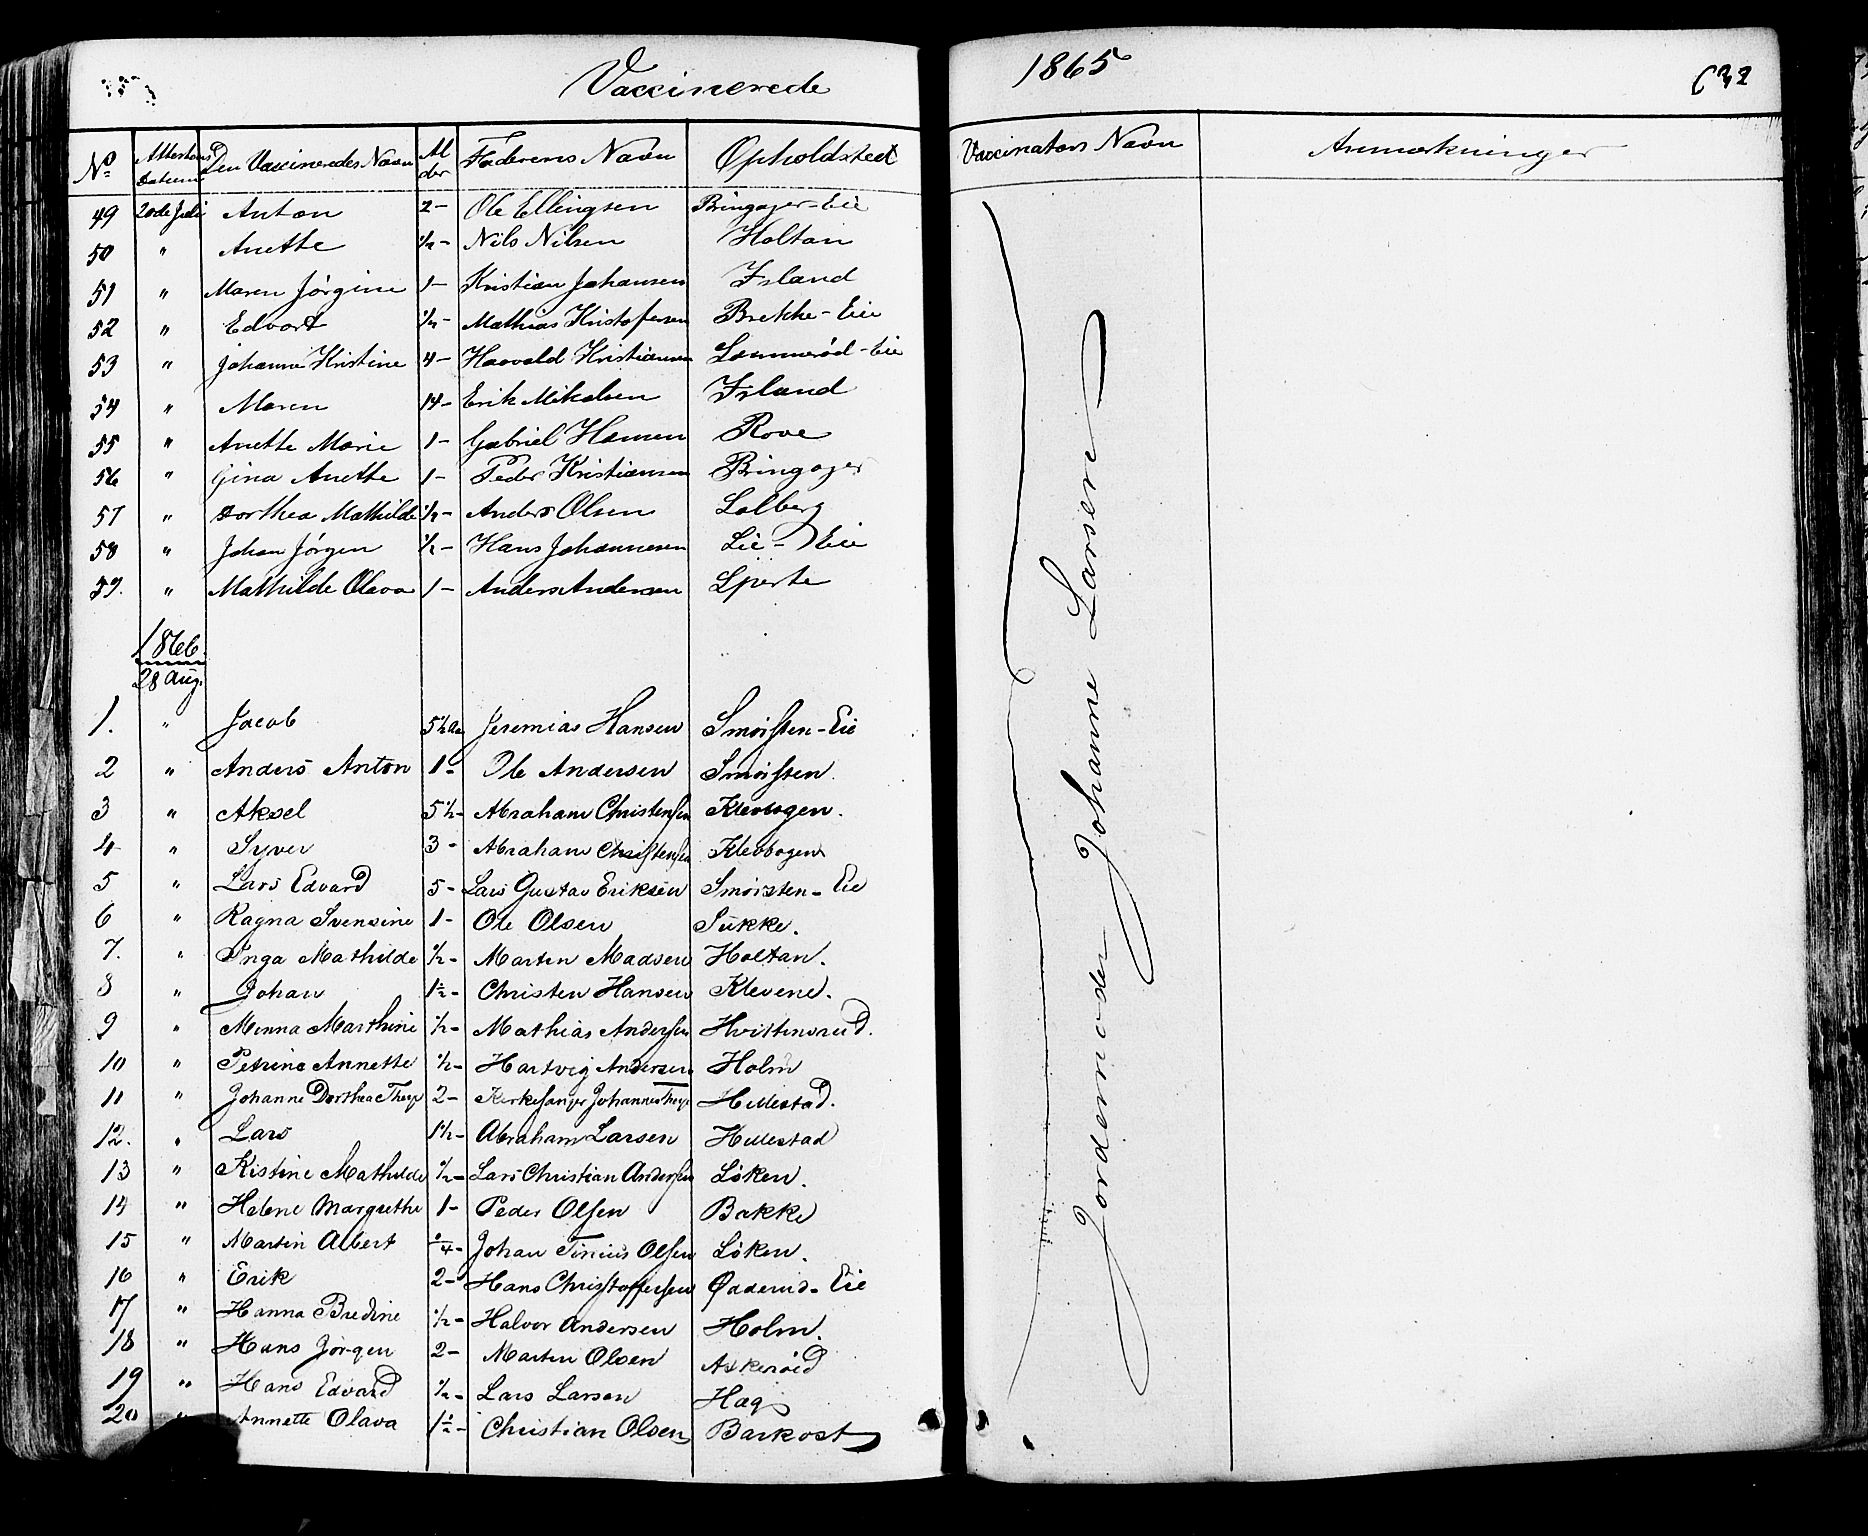 Vaccinerede 1865 632
No Attestens Datum Den Vaccineredes Navn Alder Faderens Navn Opholdsted Vaccinators Navn Anmærkninger
49 20de Juli Anton 2- Ole Ellingsen Bringager-Eie
50 " Anette ½- Nils Nilsen Holtan
51 " Maren Jørgine 1- Kristian Johansen Island
52 " Edvart ½- Mathias Kristofersen Brekke-Eie
53 " Johanne Kristine 4- Haavald Kristiansen Lammerød-Eie
54 " Maren 14- Erik Mikalsen Island
55 " Anette Marie 1- Gabriel Hansen Rove
56 " Gina Anette 1- Peder Kristiansen Bringager
57 " Dorthea Mathilde ½- Anders Olsen Solberg
58 " Johan Jørgen ½- Hans Johannesen Lie-Eie
59. " Mathilde Olava 1- Anders Andersen
1866.
28 Aug.
1. " Jacob 5½ Aa Jeremias Hansen Smørsten-Eie
2 " Anders Anton 1- Ole Andersen Smørsten.
3 " Aksel 5½- Abraham Christensen Klevbogen.
4 " Syver 3- Abraham Christensen Klevbogen
5 " Lars Edvard 5- Lars Gustav Eriksen Smørsten-Eie
6 " Ragna Svensine 1- Ole Olsen Sukke.
7. " Inga Mathilde ½- Marten Madsen Holtan.
8 " Johan 1½- Christen Hansen Klevene.
9 " Minna Marthine ½- Mathias Andersen Hvittensrud.
10 " Petrine Annette ½- Hartvig Andersen Holm
11 " Johanne Dorthea 2- Kirkesanger Johannes Hillestad.
12. " Lars 1½- Abraham Larsen Hillestad
13 " Kistine Mathilde ½- Lars Christian Andersen Løken.
14 " Helene Margrethe 1- Peder Olsen Bakke
15 " Martin Albert Johan Tinius Olsen Løken.
16 " Erik 2- Hans Christoffersen -Eie
17 " Hanna Bredine ½- Halvor Andersen Holm.
18 " Hans Jørgen 2- Marten Olsen Askerøid
19 " Hans Edvard ½- Lars Larsen Hag
20 " Annette Olava 1½- Christian Olsen Barkost
Jordemoder Johanne Larsen